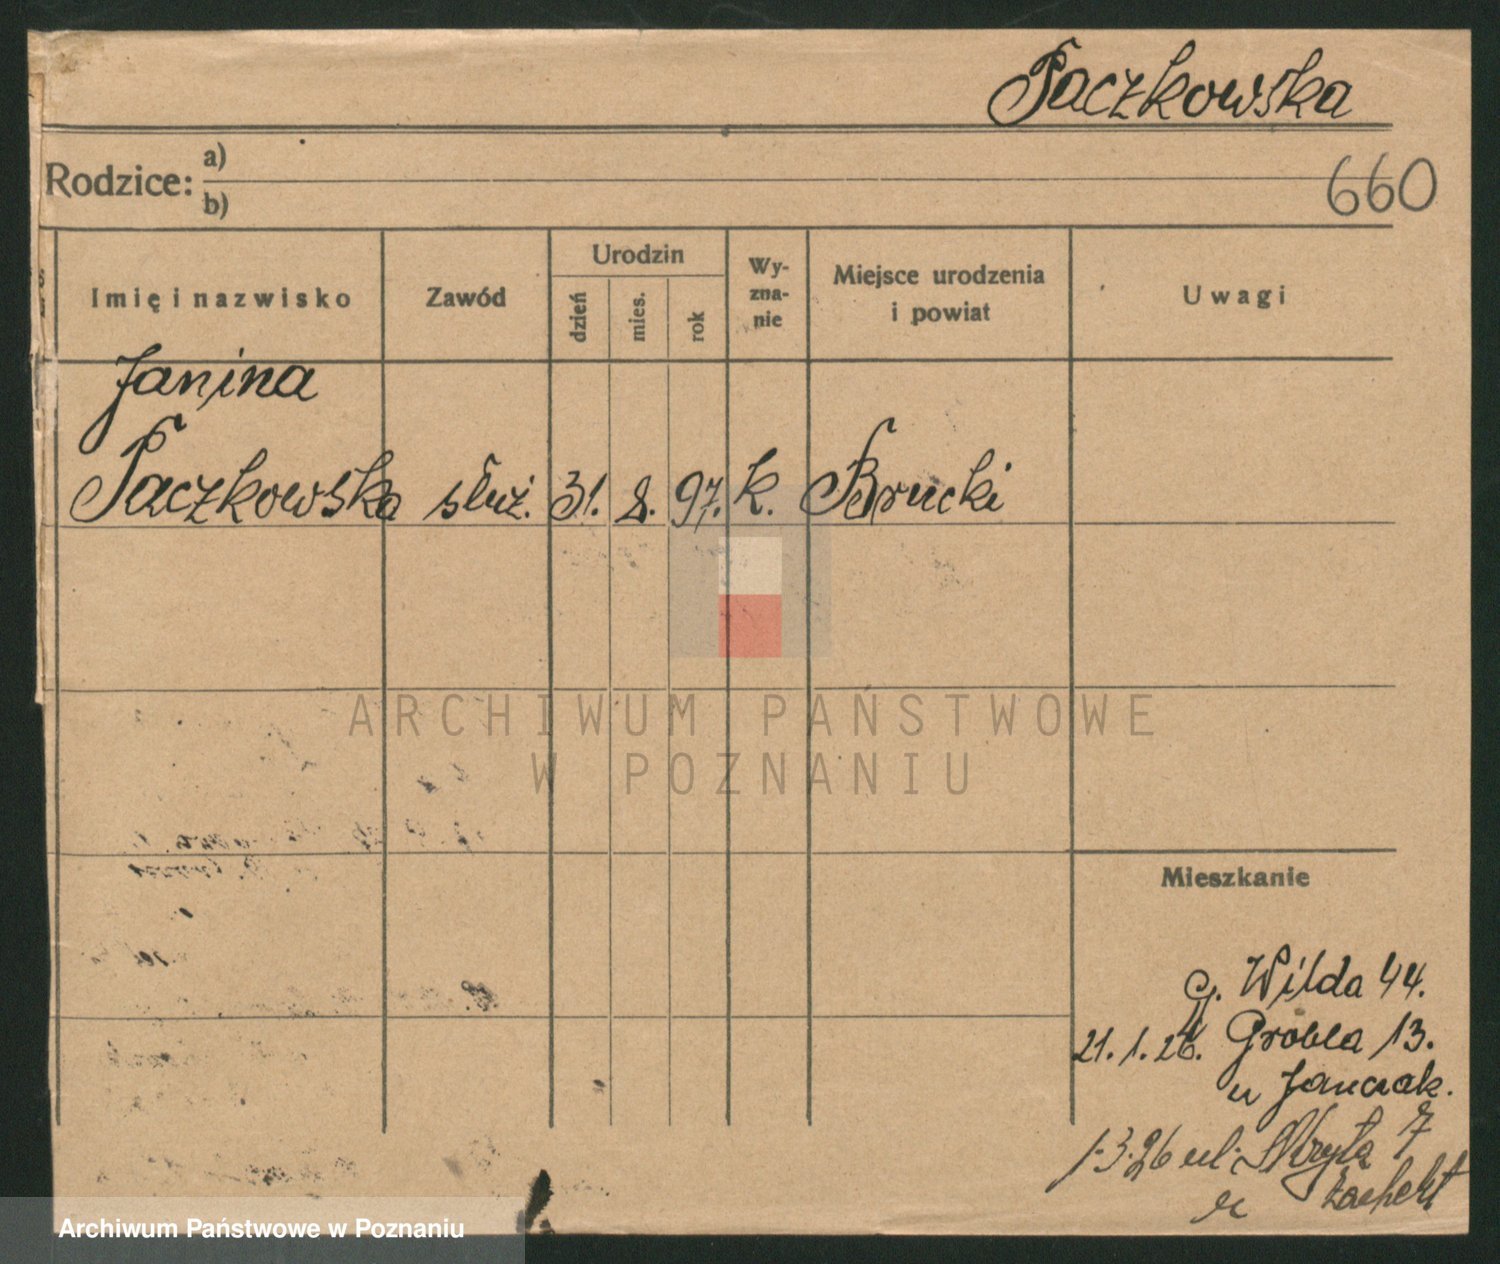 Paczkowska
Rodzice: a)
b)
660
Imię i nazwisko
Zawód
Urodzin
dzień
mies.
rok
Wy-
zna-
nie
Miejsce urodzenia
i powiat
Uwagi
Janina
Paczkowska służ. 31. 8. 97. k. Brucki
ARCHIWUM PAŃSTWOWE
W POZNANIU
Mieszkanie
g. Wilda 44.
21. 1. 26. Grobla 13.
u Janczak.
1.3.26 ul. Skryta 7
u
Archiwum Państwowe w Poznaniu